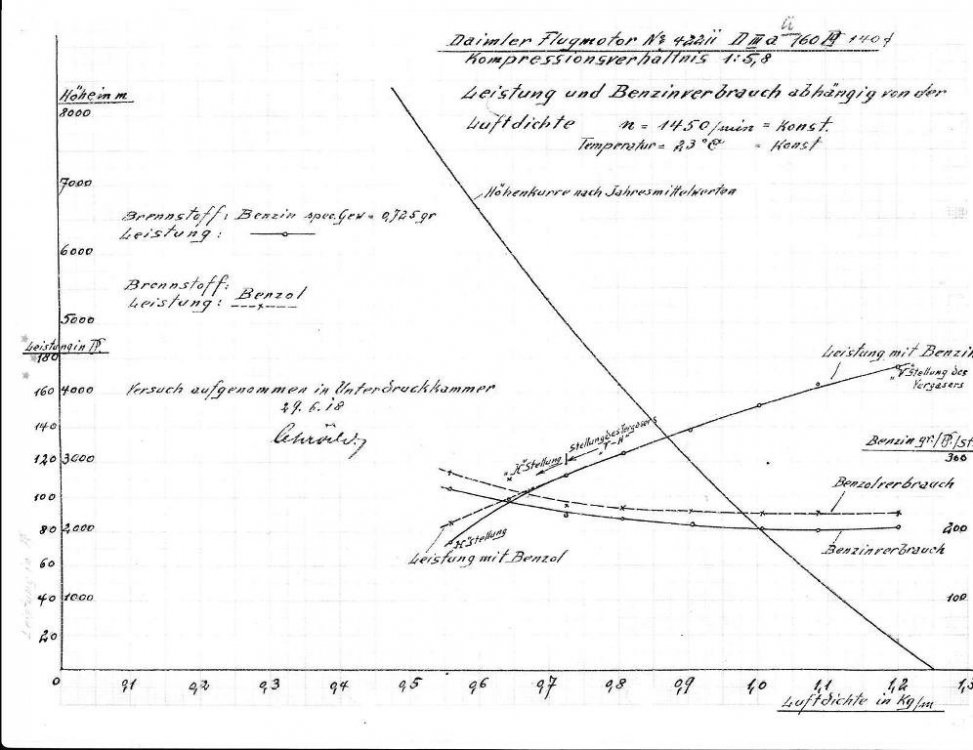 Daimler Flugmotor № 42211 D III a ü 160 PS 1404
Kompressionsverhältnis 1:5,8
Leistung und Benzinverbrauch abhängig von der
Luftdichte n = 1450/min = Konst.
Temperatur = 23°C = Konst
Höhe in m
8000
7000
Höhenkurve nach Jahresmittelwerten
Brennstoff: Benzin spec. Gew = 0,725 gr
Leistung:
6000
Brennstoff:
Leistung: Benzol
5000
Leistung in PS
180
Leistung mit Benzin
"V" Stellung des
Vergasers
160 4000
Versuch aufgenommen in Unterdruckkammer
29. 6. 18
140
Stellung des Vergasers
"V-H"
"H" Stellung
Benzin gr/PS/St
300
120 3000
100
Benzolverbrauch
80 2000
200
"H" Stellung
Benzinverbrauch
Leistung mit Benzol
60
40 1000
100
20
0 0,1 0,2 0,3 0,4 0,5 0,6 0,7 0,8 0,9 1,0 1,1 1,2 1,3
Luftdichte in Kg/m